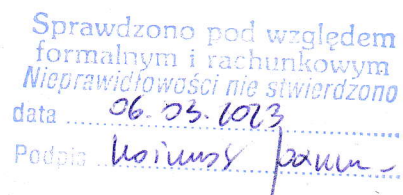 Sprawdzono pod względem
formalnym i rachunkowym
Nieprawidłowości nie stwierdzono
data ..... 06.03.2023
Podpis